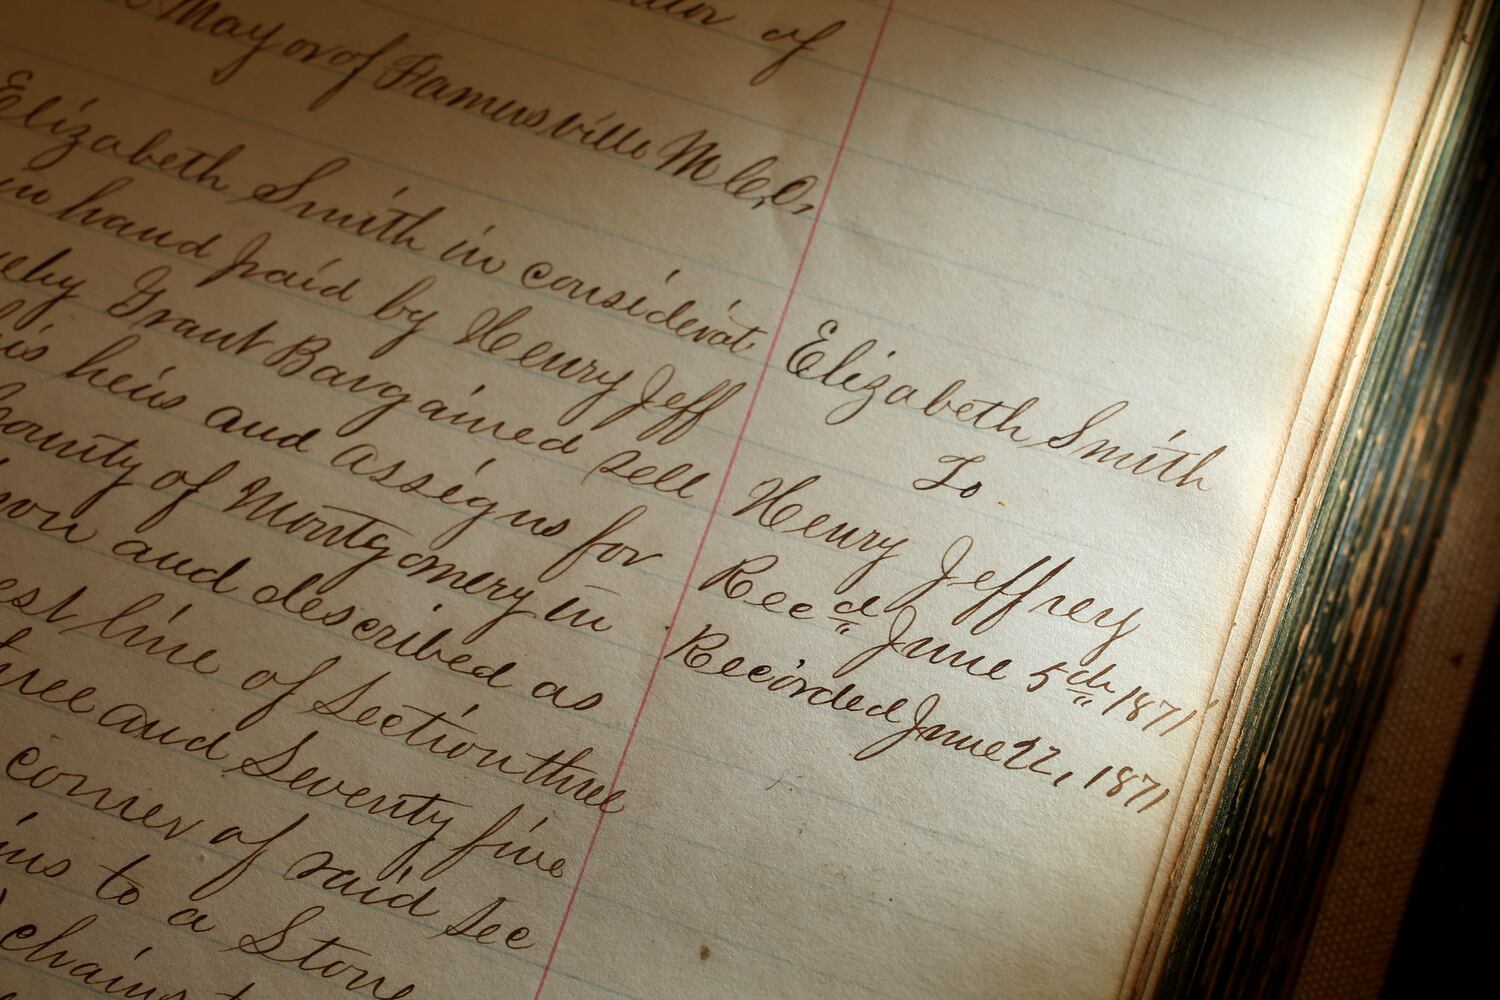 of
Mayor of Ramusville M. Co.
Elizabeth Smith in considerat
in hand paid by Henry Jeff
Grant Bargained sell
heirs and assigns for
County of Montgomery in
and described as
line of Section three
and Seventy five
corner of said Sec
to a Stone
chains
Elizabeth Smith
To
Henry Jeffrey
Rec'd June 5th 1871
Recorded June 22, 1871